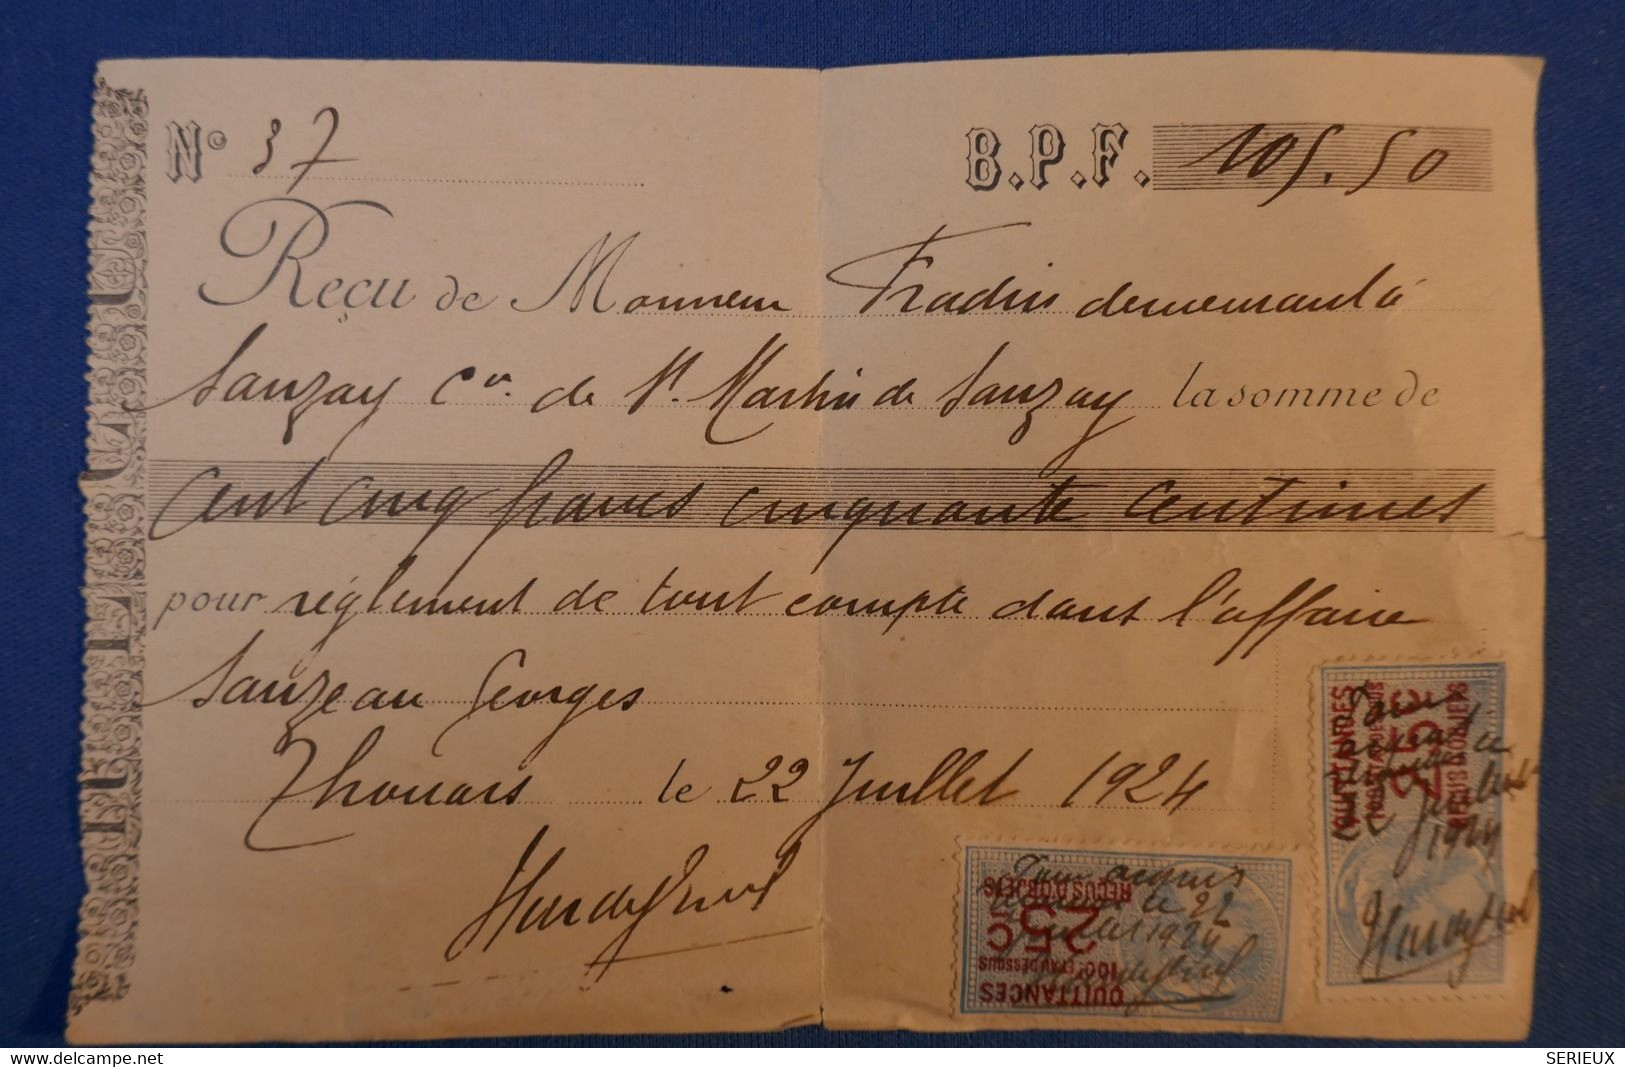 N° 37 B.P.F. 105.50
Reçu de Monsieur Fradin demeurant à
Sanzay Cne de St Martin de Sanzay la somme de
cent cinq francs cinquante centimes
pour règlement de tout compte dans l'affaire
Sauzeau Georges
Thouars le 22 Juillet 1924
QUITTANCES
100F ET AU DESSOUS
25c
REÇUS D'OBJETS
Pour acquis
Thouars le 22
Juillet 1924
QUITTANCES
25c
REÇUS D'OBJETS
Pour
acquit
Thouars le
22 Juillet
1924
SERIEUX